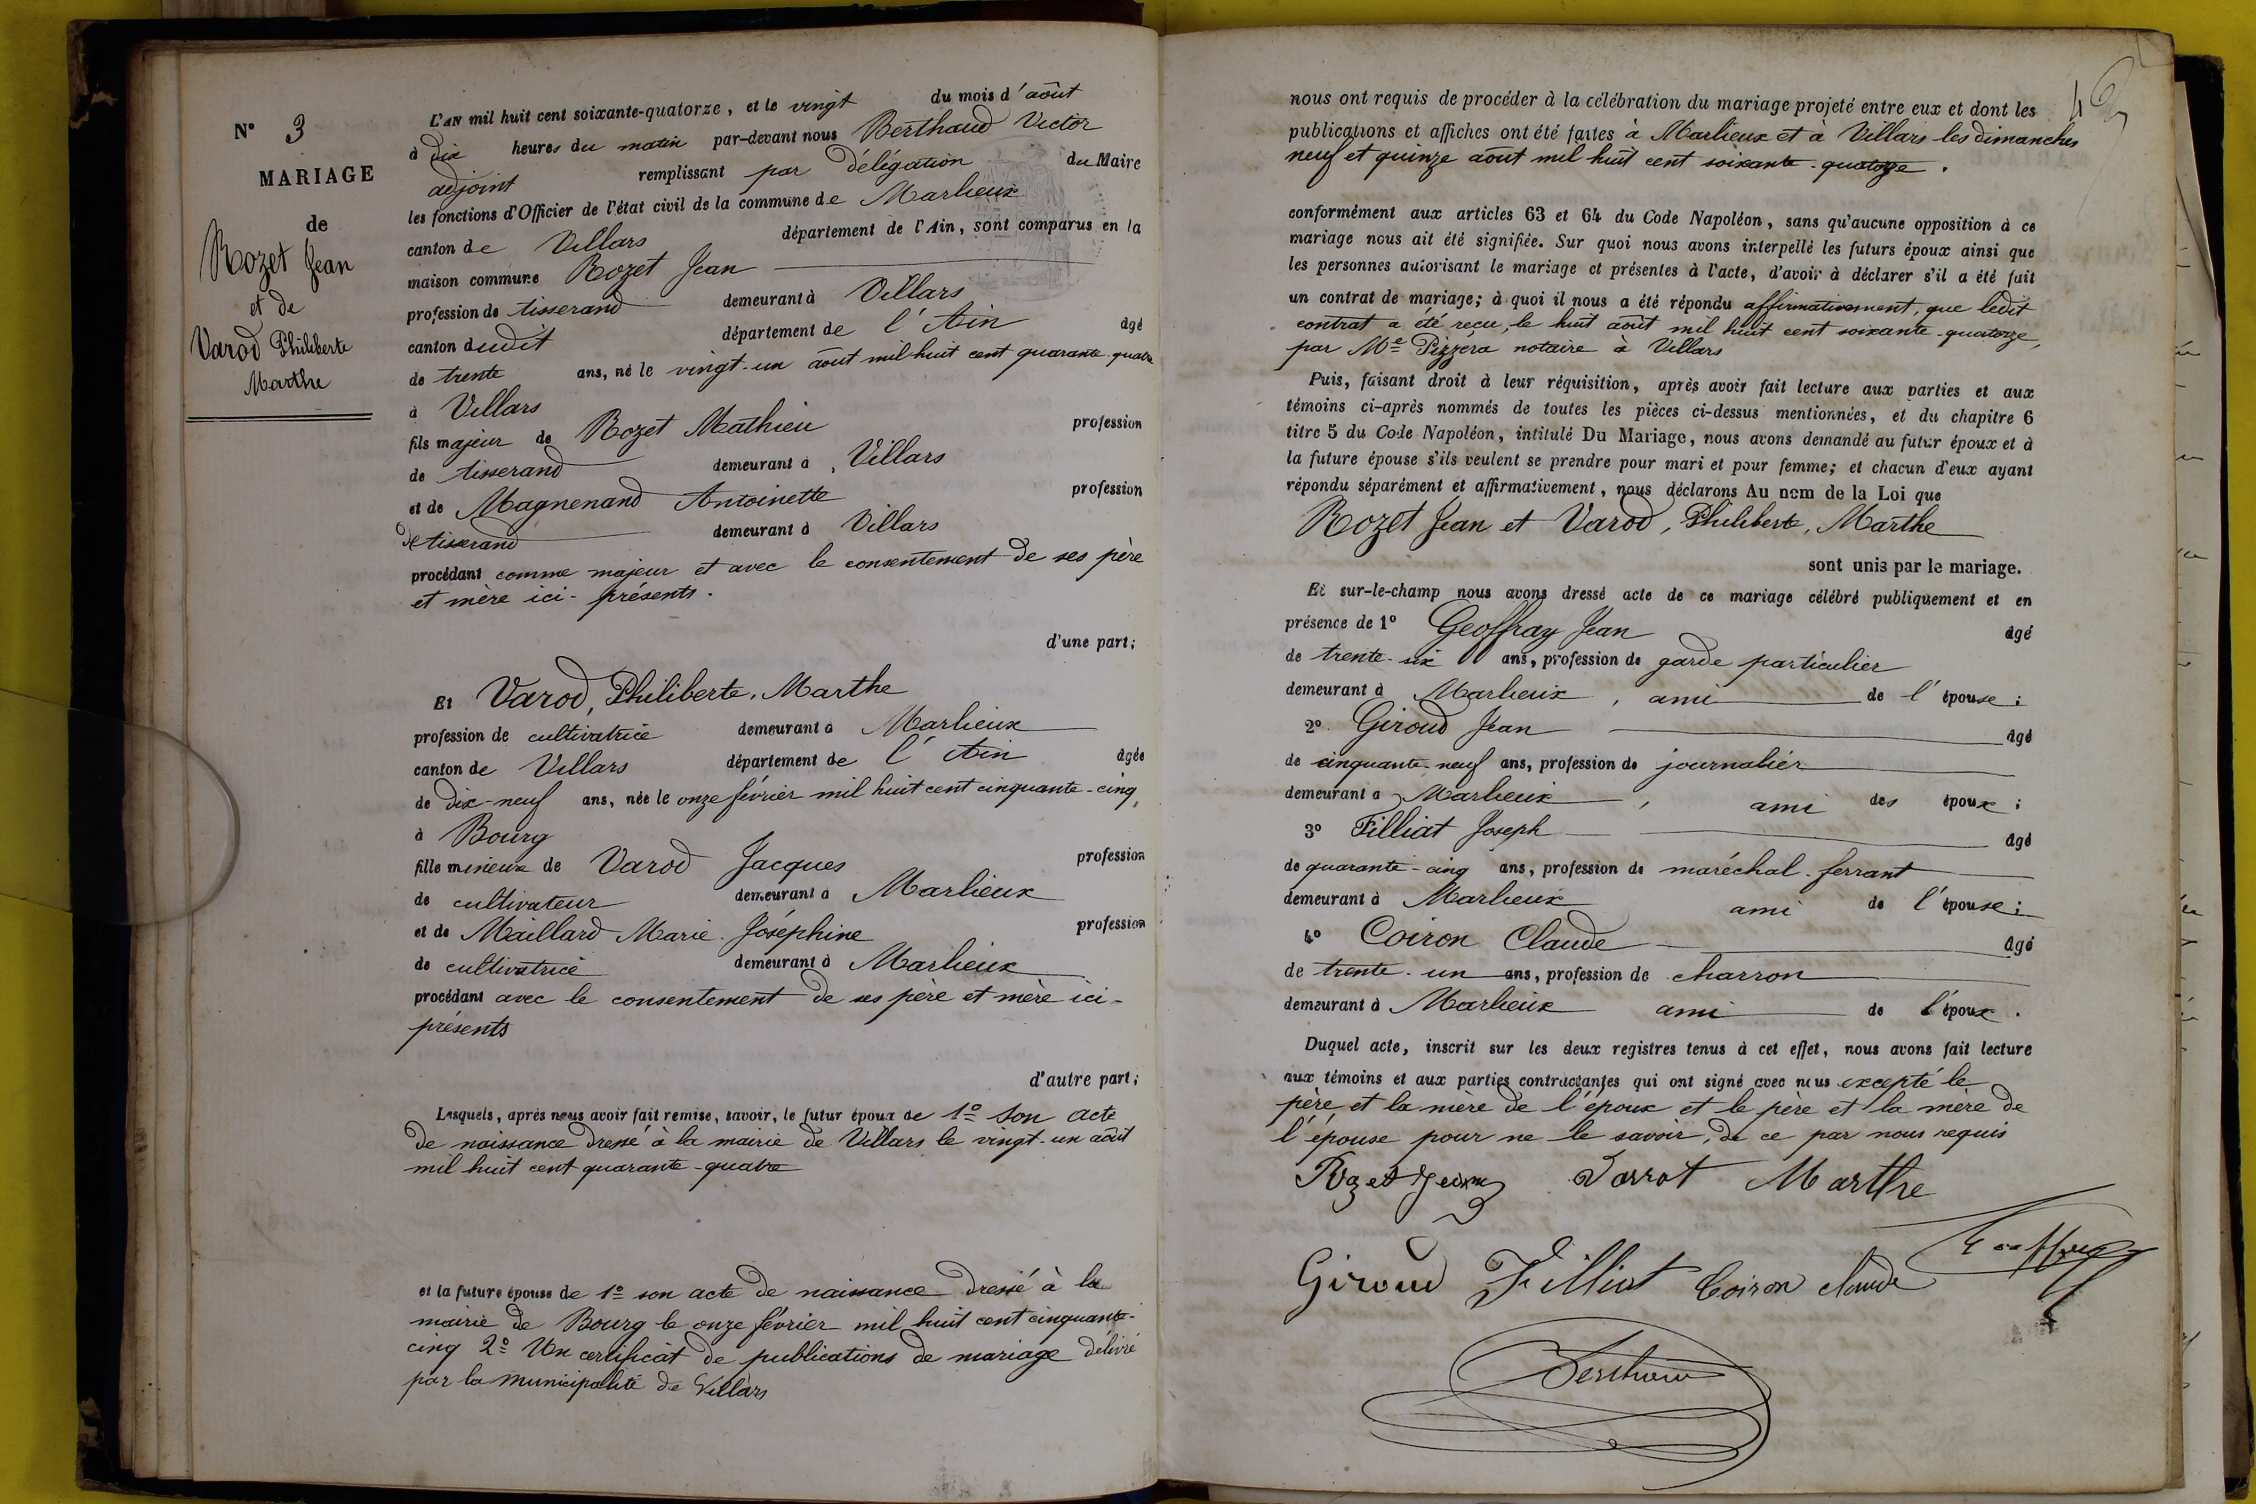 N° 3
MARIAGE
de
Rozet Jean
et de
Varod Philiberte
Marthe
L'AN mil huit cent soixante-quatorze, et le vingt du mois d'août
à dix heures du matin par-devant nous Berthaud Victor
adjoint remplissant par délégation du Maire
les fonctions d'Officier de l'état civil de la commune de Marlieux
canton de Villars département de l'Ain, sont comparus en la
maison commune Rozet Jean
profession de tisserand demeurant à Villars
canton dudit département de l'Ain âgé
de trente ans, né le vingt-un août mil huit cent quarante-quatre
à Villars
fils majeur de Rozet Mathieu profession
de tisserand demeurant à Villars
et de Magnenand Antoinette profession
de tisserand demeurant à Villars
procédant comme majeur et avec le consentement de ses père
et mère ici-présents.
d'une part;
Et Varod, Philiberte, Marthe
profession de cultivatrice demeurant à Marlieux
canton de Villars département de l'Ain âgée
de dix-neuf ans, née le onze février mil huit cent cinquante-cinq,
à Bourg
fille mineure de Varod Jacques profession
de cultivateur demeurant à Marlieux
et de Maillard Marie Joséphine profession
de cultivatrice demeurant à Marlieux
procédant avec le consentement de ses père et mère ici-
présents
d'autre part;
Lesquels, après nous avoir fait remise, savoir, le futur époux de 1° Son acte
de naissance dressé à la mairie de Villars le vingt-un août
mil huit cent quarante-quatre
et la future épouse de 1° son acte de naissance dressé à la
mairie de Bourg le onze février mil huit cent cinquante-
cinq 2° Un certificat de publications de mariage délivré
par la municipalité de Villars
nous ont requis de procéder à la célébration du mariage projeté entre eux et dont les
publications et affiches ont été faites à Marlieux et à Villars les dimanches
neuf et quinze août mil huit cent soixante-quatorze.
conformément aux articles 63 et 64 du Code Napoléon, sans qu'aucune opposition à ce
mariage nous ait été signifiée. Sur quoi nous avons interpellé les futurs époux ainsi que
les personnes autorisant le mariage et présentes à l'acte, d'avoir à déclarer s'il a été fait
un contrat de mariage; à quoi il nous a été répondu affirmativement, que ledit
contrat a été reçu, le huit août mil huit cent soixante-quatorze,
par Me Pizzera notaire à Villars
Puis, faisant droit à leur réquisition, après avoir fait lecture aux parties et aux
témoins ci-après nommés de toutes les pièces ci-dessus mentionnées, et du chapitre 6
titre 5 du Code Napoléon, intitulé Du Mariage, nous avons demandé au futur époux et à
la future épouse s'ils veulent se prendre pour mari et pour femme; et chacun d'eux ayant
répondu séparément et affirmativement, nous déclarons Au nom de la Loi que
Rozet Jean et Varod, Philiberte, Marthe
sont unis par le mariage.
Et sur-le-champ nous avons dressé acte de ce mariage célébré publiquement et en
présence de 1° Geoffray Jean âgé
de trente-six ans, profession de garde particulier
demeurant à Marlieux, ami de l'épouse;
2° Giroud Jean âgé
de cinquante-neuf ans, profession de journalier
demeurant à Marlieux, ami des époux;
3° Filliat Joseph âgé
de quarante-cinq ans, profession de maréchal-ferrant
demeurant à Marlieux ami de l'épouse;
4° Coiron Claude âgé
de trente-un ans, profession de charron
demeurant à Marlieux ami de l'époux.
Duquel acte, inscrit sur les deux registres tenus à cet effet, nous avons fait lecture
aux témoins et aux parties contractantes qui ont signé avec nous excepté le
père et la mère de l'époux et le père et la mère de
l'épouse pour ne le savoir, de ce par nous requis
Rozet Jean Varrot Marthe
Geoffray
Giroud Filliat Coiron claude
Berthaud